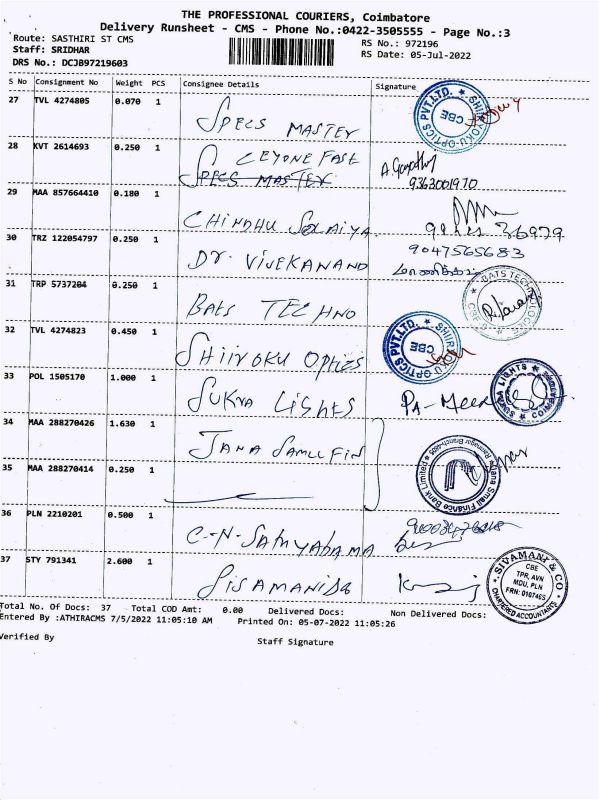 THE PROFESSIONAL COURIERS, Coimbatore
Delivery Runsheet - CMS - Phone No.:0422-3505555 - Page No.:3
Route: SASTHIRI ST CMS
RS No.: 972196
Staff: SRIDHAR
RS Date: 05-Jul-2022
DRS No.: DCJB97219603
S No Consignment No Weight PCS Consignee Details Signature
27 TVL 4274805 0.070 1
SPECS MASTER
SHIIRYOKU OPTICS PVT.LTD. CBE
28 KVT 2614693 0.250 1
CEYONE FAST
SPECS MASTER
9363001970
29 MAA 857664410 0.180 1
CHINDHU SOLAIYA
30 TRZ 122054797 0.250 1
DR. VIVEKANAND
9047565683
மாணிக்கம்
31 TRP 5737204 0.250 1
BATS TECHNO
BATS TECHNO
32 TVL 4274823 0.450 1
SHIIRYOKU OPTICS
SHIIRYOKU OPTICS PVT.LTD. CBE
33 POL 1505170 1.000 1
SUKRA LIGHTS
SUKRAA LIGHTS COIMBATORE
34 MAA 288270426 1.630 1
JANA SAMLL FIN
Jana Small Finance Bank Limited
Ramnagar Branch
35 MAA 288270414 0.250 1
36 PLN 2210201 0.500 1
C-N-SATHYABAMA
37 STY 791341 2.600 1
SISAMANI & CO
SIVAMANI & CO
CBE
TPR, AVN
MDU, PLN
FRN: 010746S
CHARTERED ACCOUNTANTS
Total No. Of Docs: 37 Total COD Amt: 0.00 Delivered Docs: Non Delivered Docs:
Entered By :ATHIRACMS 7/5/2022 11:05:10 AM Printed On: 05-07-2022 11:05:26
Verified By
Staff Signature